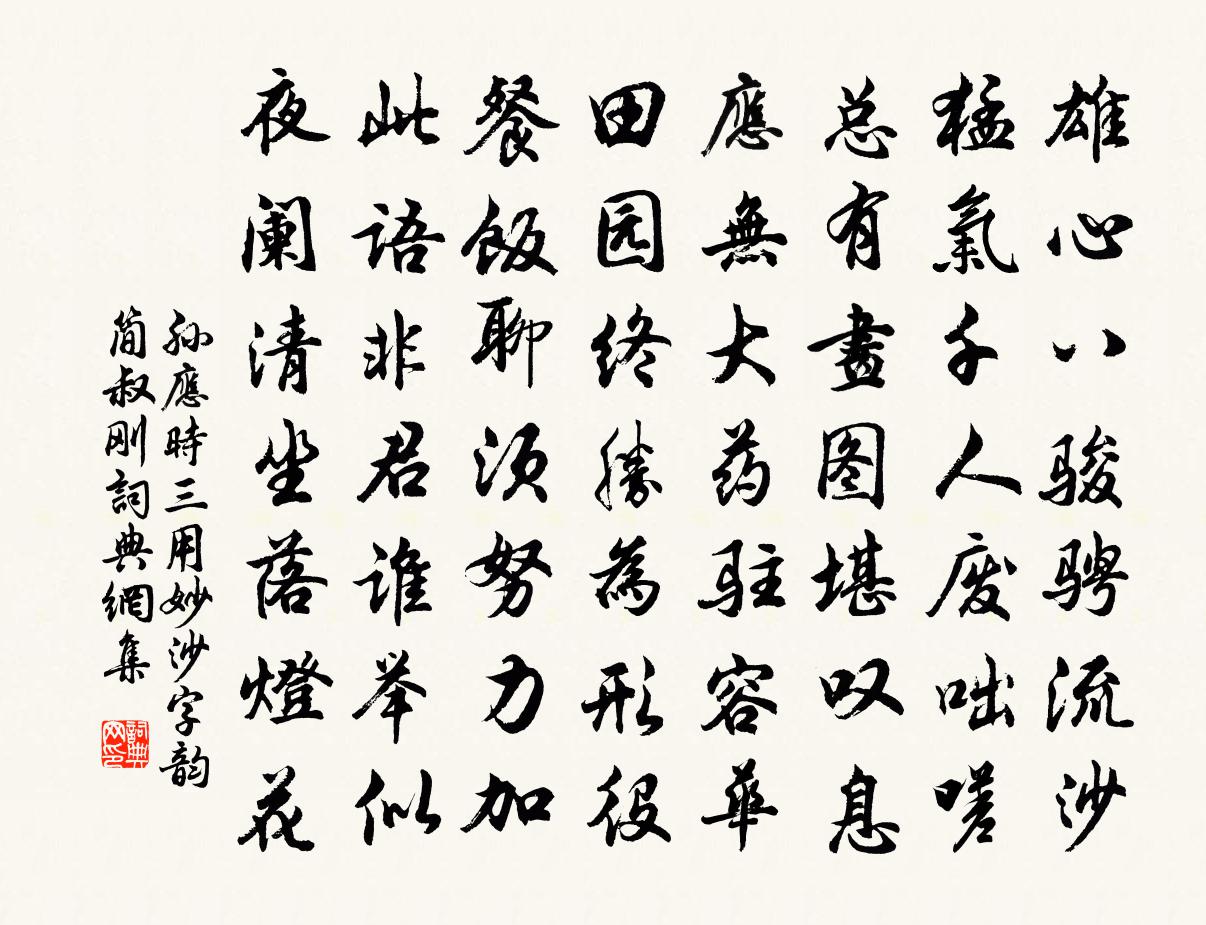 雄心八骏骋流沙
猛氣千人废咄嗟
总有畫图堪叹息
應無大药駐容華
田园终勝為形役
餐飯聊须努力加
此語非君谁举似
夜阑清坐落燈花
孙應時三用妙沙字韵
简叔刚詞典網集
詞典网印